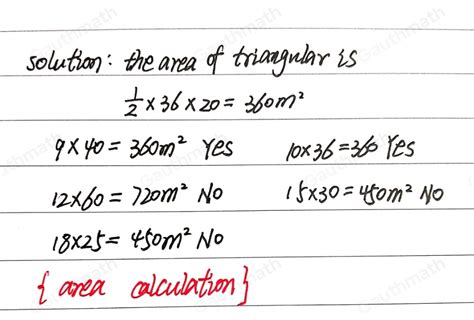 solution: the area of triangular is
1/2 × 36 × 20 = 360m²
9 × 40 = 360m² Yes 10×36 = 360 Yes
12×60 = 720m² No 15×30 = 450m² No
18×25 = 450m² No
{ area calculation }
Gauthmath